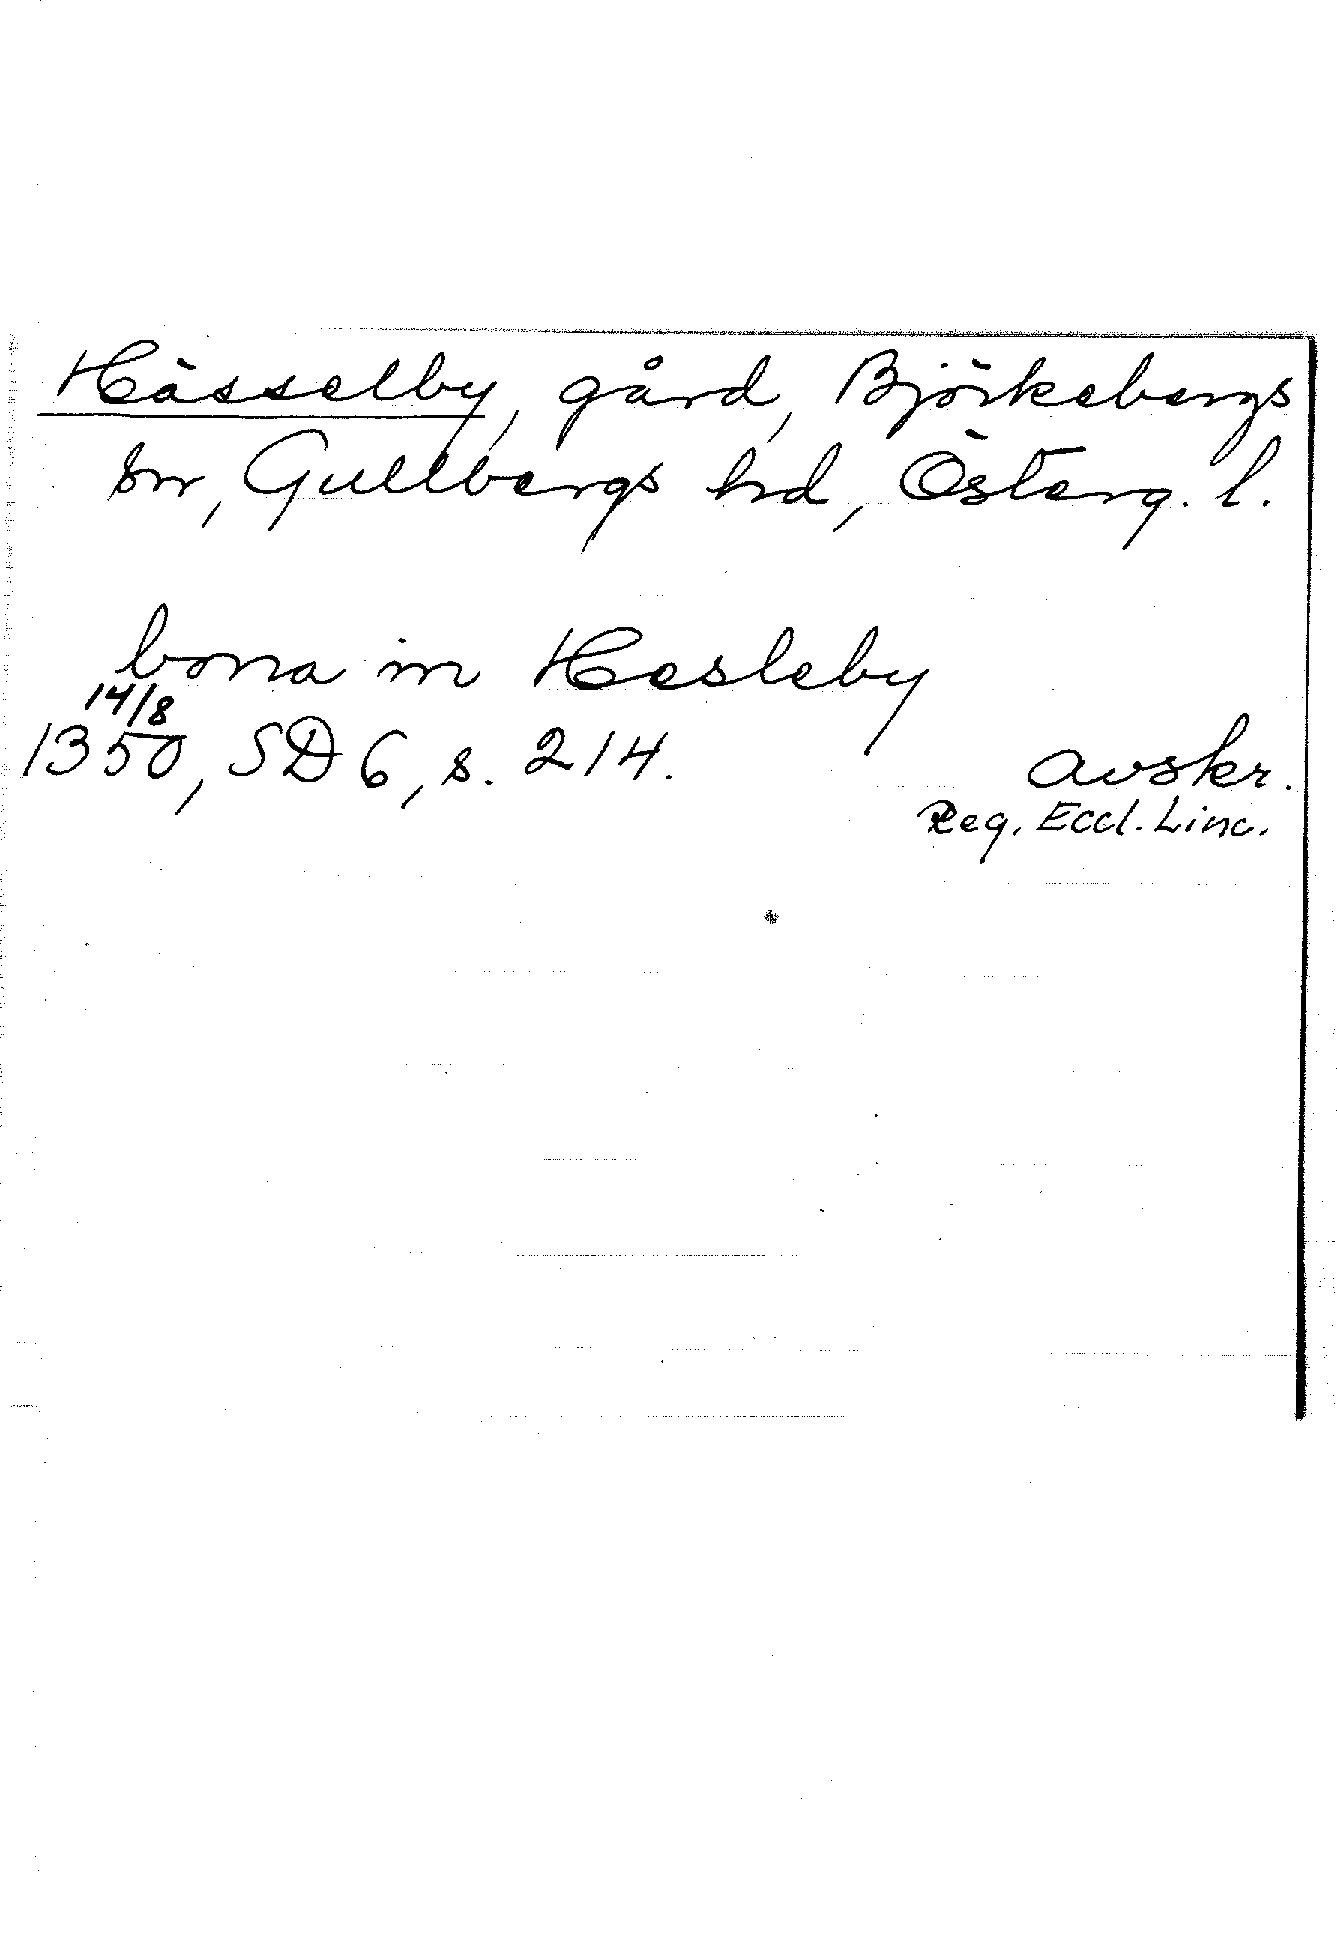 Hässelby, gård, Björkebergs
sn, Gullbergs hd, Österg. l.
bona in Hesleby
14/8
1350, SD 6, s. 214.
avskr.
Reg. Eccl. Linc.